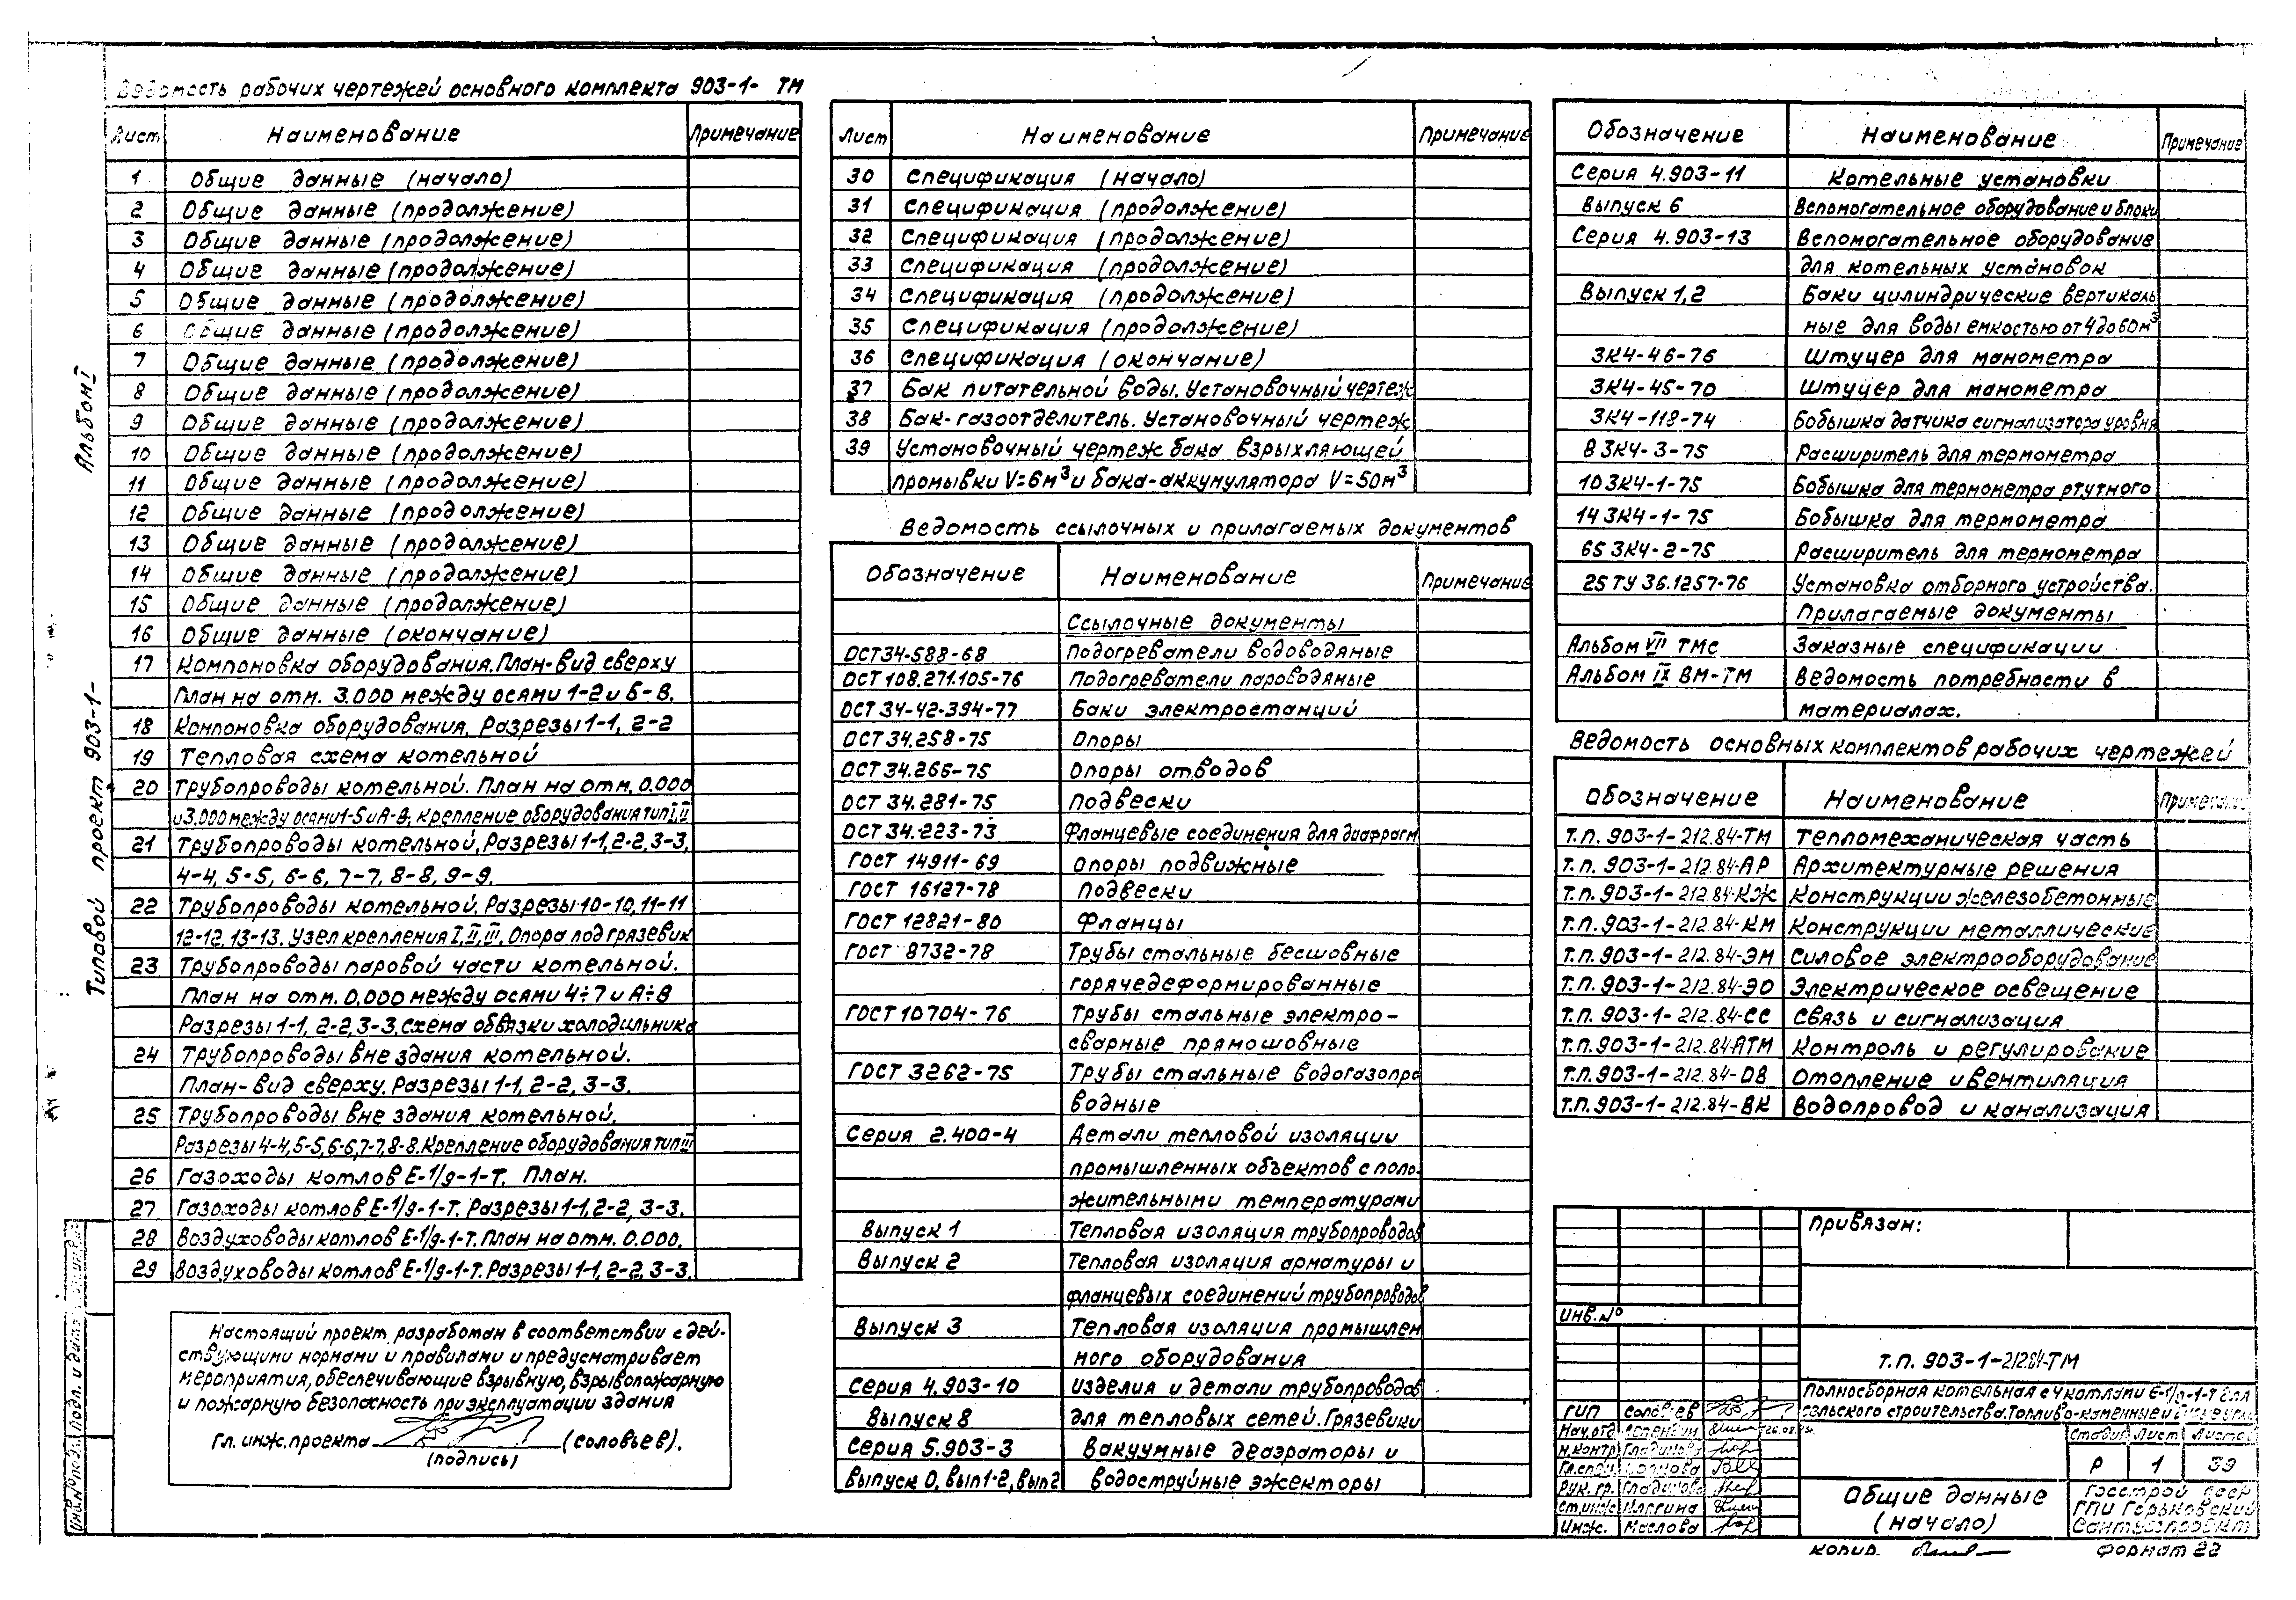 Ведомость рабочих чертежей основного комплекта 903-1- ТМ
Лист Наименование Примечание
1 Общие данные (начало)
2 Общие данные (продолжение)
3 Общие данные (продолжение)
4 Общие данные (продолжение)
5 Общие данные (продолжение)
6 Общие данные (продолжение)
7 Общие данные (продолжение)
8 Общие данные (продолжение)
9 Общие данные (продолжение)
10 Общие данные (продолжение)
11 Общие данные (продолжение)
12 Общие данные (продолжение)
13 Общие данные (продолжение)
14 Общие данные (продолжение)
15 Общие данные (продолжение)
16 Общие данные (окончание)
17 Компоновка оборудования. План-вид сверху
План на отм. 3.000 между осями 1-2 и Б-В.
18 Компоновка оборудования. Разрезы 1-1, 2-2
19 Тепловая схема котельной
20 Трубопроводы котельной. План на отм. 0.000
и 3.000 между осями 1-5 и А-В, крепление оборудования тип I, II
21 Трубопроводы котельной. Разрезы 1-1, 2-2, 3-3,
4-4, 5-5, 6-6, 7-7, 8-8, 9-9.
22 Трубопроводы котельной. Разрезы 10-10, 11-11
12-12, 13-13. Узел крепления I, II, III. Опора под грязевик
23 Трубопроводы паровой части котельной.
План на отм. 0.000 между осями 4÷7 и А÷В
Разрезы 1-1, 2-2, 3-3. Схема обвязки холодильника
24 Трубопроводы вне здания котельной.
План-вид сверху. Разрезы 1-1, 2-2, 3-3.
25 Трубопроводы вне здания котельной.
Разрезы 4-4, 5-5, 6-6, 7-7, 8-8. Крепление оборудования тип III
26 Газоходы котлов Е-1/9-1-Т. План.
27 Газоходы котлов Е-1/9-1-Т. Разрезы 1-1, 2-2, 3-3.
28 Воздуховоды котлов Е-1/9-1-Т. План на отм. 0.000.
29 Воздуховоды котлов Е-1/9-1-Т. Разрезы 1-1, 2-2, 3-3.
Настоящий проект разработан в соответствии с дей-
ствующими нормами и правилами и предусматривает
мероприятия, обеспечивающие взрывную, взрывопожарную
и пожарную безопасность при эксплуатации здания
Гл. инж. проекта (Соловьев).
(подпись)
Альбом I
Типовой проект 903-1-
Инв. № подл. Подп. и дата
Лист Наименование Примечание
30 Спецификация (начало)
31 Спецификация (продолжение)
32 Спецификация (продолжение)
33 Спецификация (продолжение)
34 Спецификация (продолжение)
35 Спецификация (продолжение)
36 Спецификация (окончание)
37 Бак питательной воды. Установочный чертеж
38 Бак-газоотделитель. Установочный чертеж
39 Установочный чертеж бака взрыхляющей
промывки V=6м³ и бака-аккумулятора V=50м³
Ведомость ссылочных и прилагаемых документов
Обозначение Наименование Примечание
Ссылочные документы
ОСТ34-588-68 Подогреватели водоводяные
ОСТ 108.271.105-76 Подогреватели пароводяные
ОСТ 34-42-394-77 Баки электростанций
ОСТ 34.258-75 Опоры
ОСТ 34.266-75 Опоры отводов
ОСТ 34.281-75 Подвески
ОСТ 34.223-73 Фланцевые соединения для диафрагм
ГОСТ 14911-69 Опоры подвижные
ГОСТ 16127-78 Подвески
ГОСТ 12821-80 Фланцы
ГОСТ 8732-78 Трубы стальные бесшовные
горячедеформированные
ГОСТ 10704-76 Трубы стальные электро-
сварные прямошовные
ГОСТ 3262-75 Трубы стальные водогазопро
водные
Серия 2.400-4 Детали тепловой изоляции
промышленных объектов с поло-
жительными температурами
Выпуск 1 Тепловая изоляция трубопроводов
Выпуск 2 Тепловая изоляция арматуры и
фланцевых соединений трубопроводов
Выпуск 3 Тепловая изоляция промышлен
ного оборудования
Серия 4.903-10 Изделия и детали трубопроводов
Выпуск 8 для тепловых сетей. Грязевики
Серия 5.903-3 Вакуумные деаэраторы и
Выпуск 0, вып1-2, вып2 водоструйные эжекторы
Обозначение Наименование Примечание
Серия 4.903-11 Котельные установки
Выпуск 6 Вспомогательное оборудование и блоки
Серия 4.903-13 Вспомогательное оборудование
для котельных установок
Выпуск 1,2 Баки цилиндрические вертикаль
ные для воды емкостью от 4 до 60 м³
3К4-46-76 Штуцер для манометра
3К4-45-70 Штуцер для манометра
3К4-118-74 Бобышка датчика сигнализатора уровня
8 3К4-3-75 Расширитель для термометра
10 3К4-1-75 Бобышка для термометра ртутного
14 3К4-1-75 Бобышка для термометра
65 3К4-2-75 Расширитель для термометра
25 ТУ 36.1257-76 Установка отборного устройства.
Прилагаемые документы
Альбом VII ТМС Заказные спецификации
Альбом IX ВМ-ТМ Ведомость потребности в
материалах.
Ведомость основных комплектов рабочих чертежей
Обозначение Наименование Примечание
Т.П. 903-1-212.84-ТМ Тепломеханическая часть
Т.П. 903-1-212.84-АР Архитектурные решения
Т.П. 903-1-212.84-КЖ Конструкции железобетонные
Т.П. 903-1-212.84-КМ Конструкции металлические
Т.П. 903-1-212.84-ЭМ Силовое электрооборудование
Т.П. 903-1-212.84-ЭО Электрическое освещение
Т.П. 903-1-212.84-СС Связь и сигнализация
Т.П. 903-1-212.84-АТМ Контроль и регулирование
Т.П. 903-1-212.84-ОВ Отопление и вентиляция
Т.П. 903-1-212.84-ВК Водопровод и канализация
Привязан:
Инв. №
Т.П. 903-1-212.84-ТМ
Полносборная котельная с 4 котлами Е-1/9-1-Т для
сельского строительства. Топливо-каменные и бурые угли
ГИП Соловьев
Нач. отд.
Н. контр. Гладилова
Гл. спец.
Рук. гр. Гладилова
Ст. инж.
Инж. Маслова
Стадия Лист Листов
Р 1 39
Общие данные
(начало)
Госстрой СССР
ГПИ Горьковский
Сантехпроект
Копир.
Формат 22